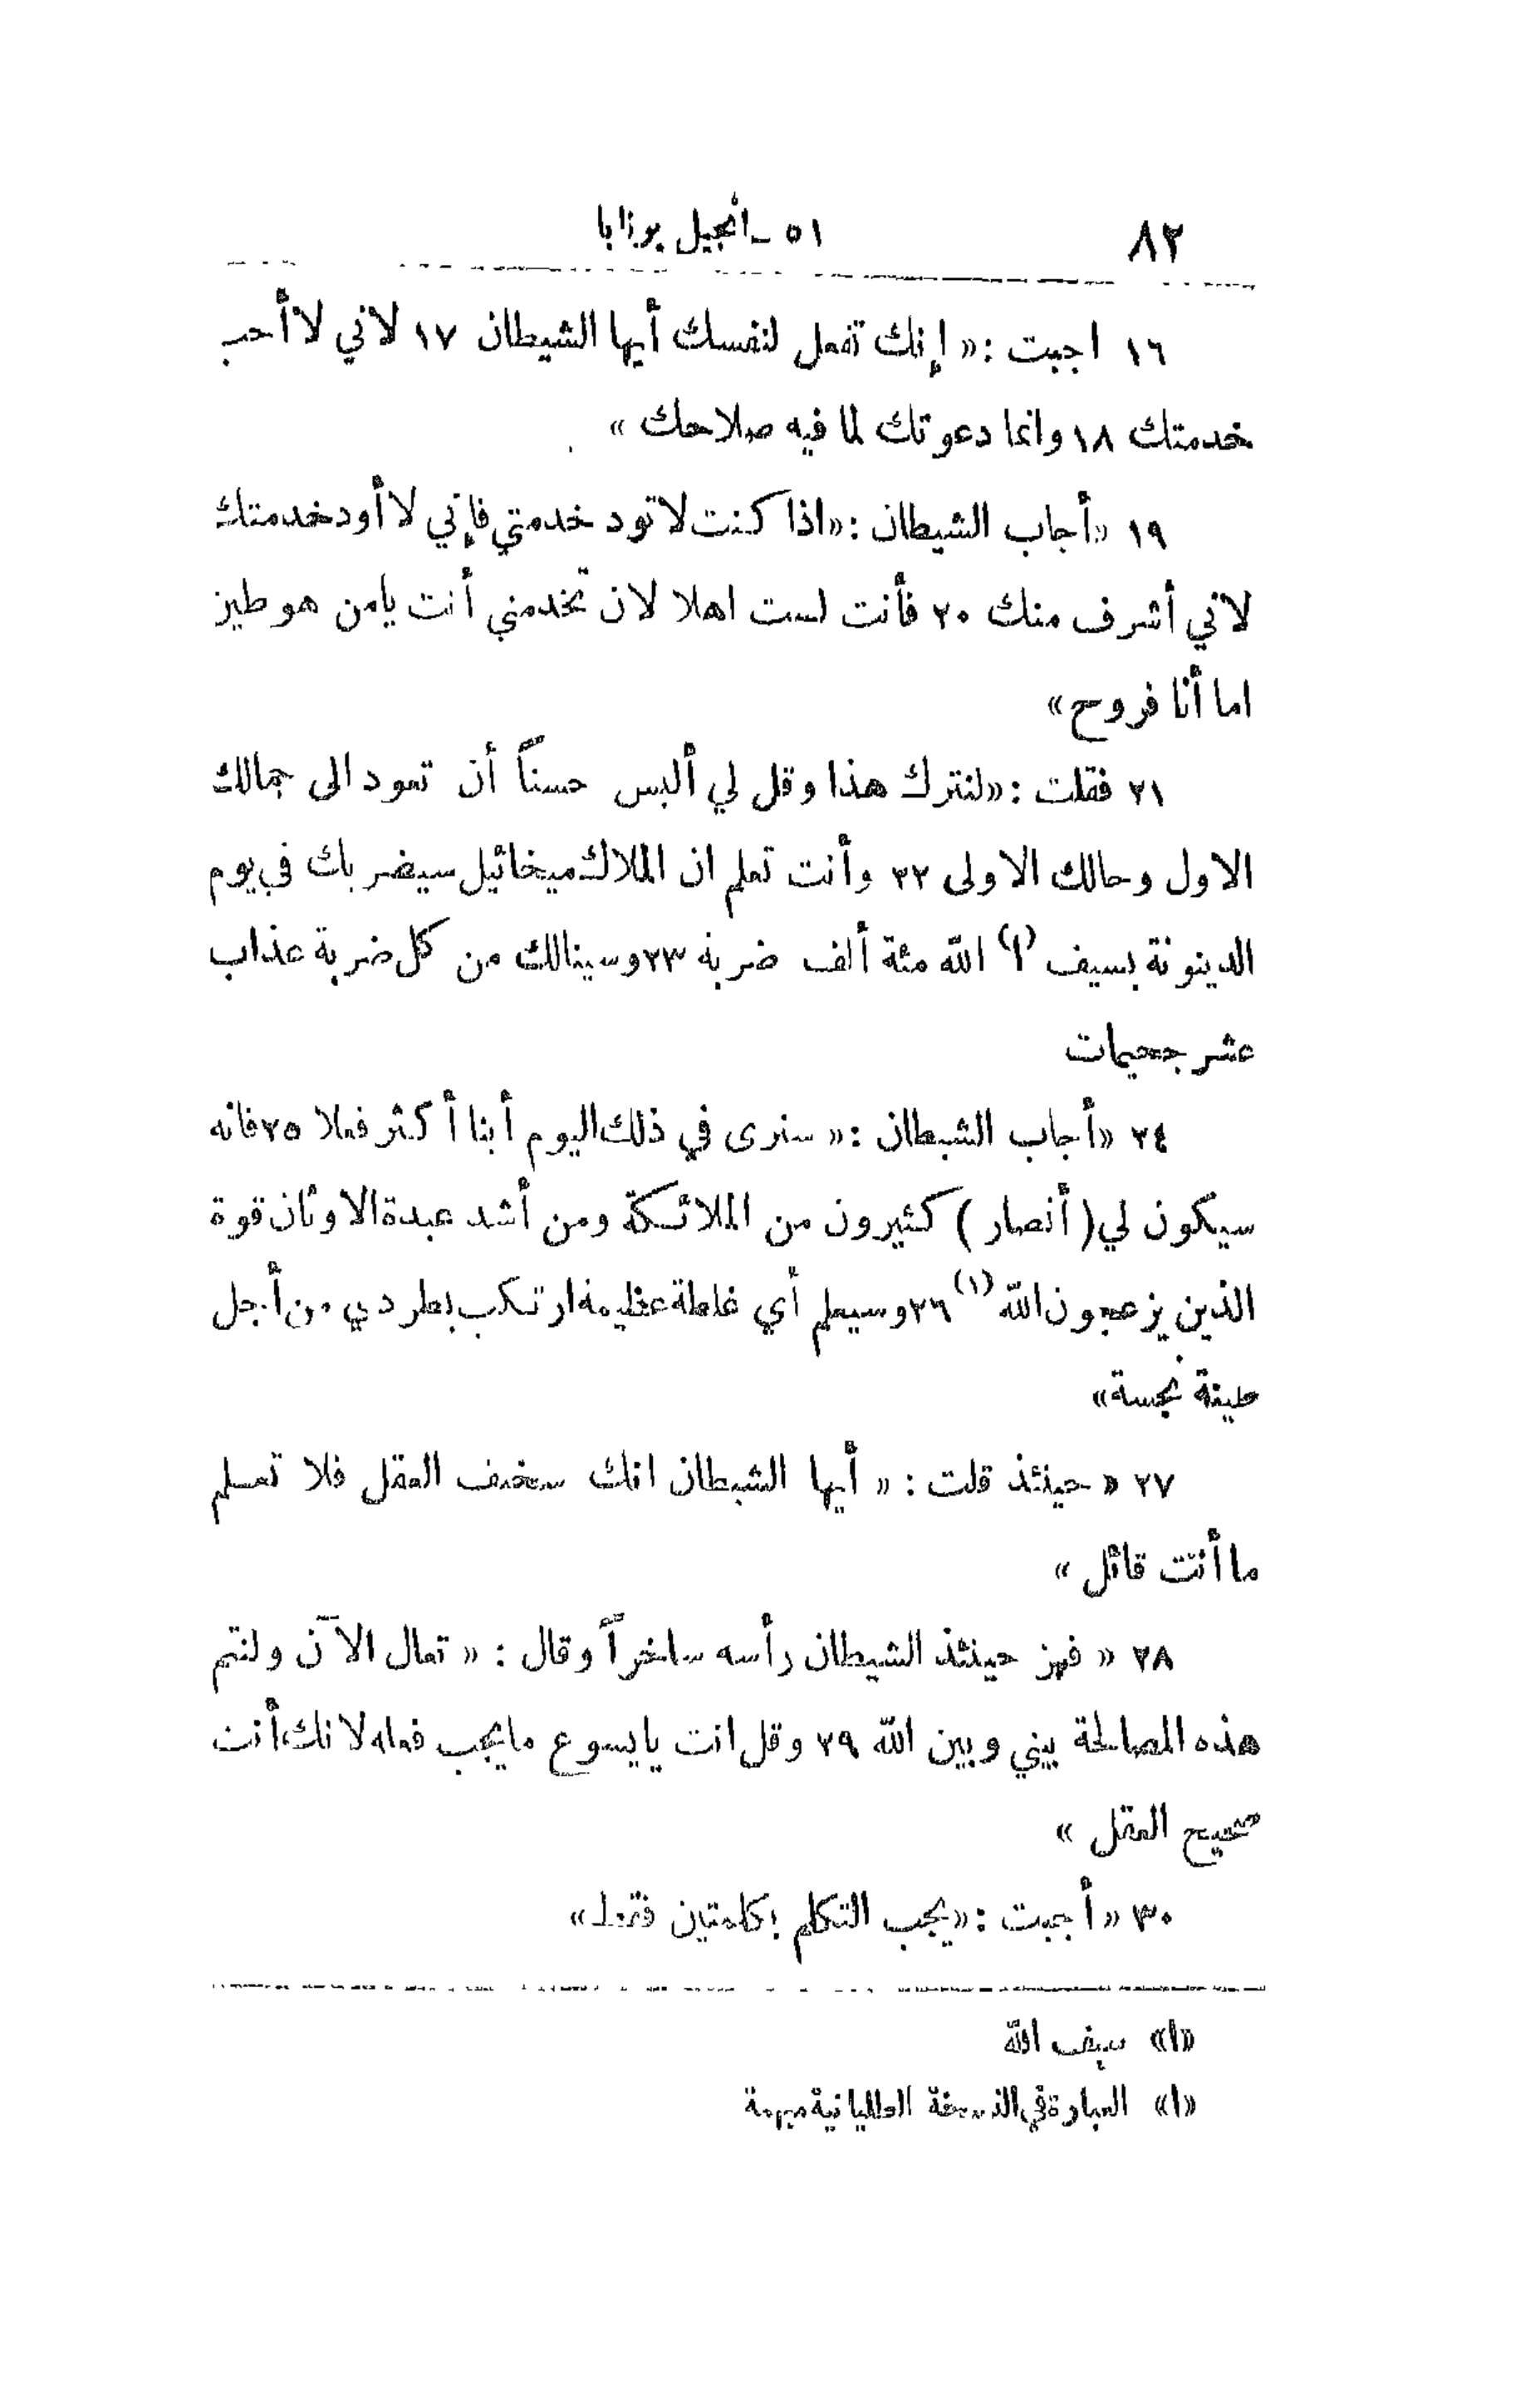 ٨٢ ٥١ ـ انجيل برنابا
١٦ اجبت : « إنك تفعل لنفسك أيها الشيطان ١٧ لاني لا أحب
خدمتك ١٨ وانما دعوتك لما فيه صلاحك »
١٩ « أجاب الشيطان : « اذا كنت لا تود خدمتي فإني لا أود خدمتك
لاني أشرف منك ٢٠ فأنت لست اهلا لان تخدمني أنت يامن هو طين
اما أنا فروح »
٢١ فقلت : « لنترك هذا وقل لي أليس حسناً أن تعود الى جمالك
الاول وحالك الاولى ٢٢ وأنت تعلم ان الملاك ميخائيل سيضربك في يوم
الدينونة بسيف (١) الله مئة ألف ضربة ٢٣ وسينالك من كل ضربة عذاب
عشر جحيمات
٢٤ « أجاب الشيطان : « سنرى في ذلك اليوم أينا أكثر فعلا ٢٥ فانه
سيكون لي ( أنصار ) كثيرون من الملائكة ومن أشد عبدة الاوثان قوة
الذين يزعجون الله (١) ٢٦ وسيعلم أي غلطة عظيمة ارتكب بطردي من أجل
طينة نجسة »
٢٧ « حينئذ قلت : « أيها الشيطان انك سخيف العقل فلا تعلم
ما أنت قائل »
٢٨ « فهز حينئذ الشيطان رأسه ساخراً وقال : « تعال الآن ولنتم
هذه المصالحة بيني وبين الله ٢٩ وقل انت يا يسوع ما يجب فعله لانك أنت
صحيح العقل »
٣٠ « أجبت : « يجب التكلم بكلمتين فقط »
«١» سيف الله
«١» العبارة في النسخة الطليانية مبهمة